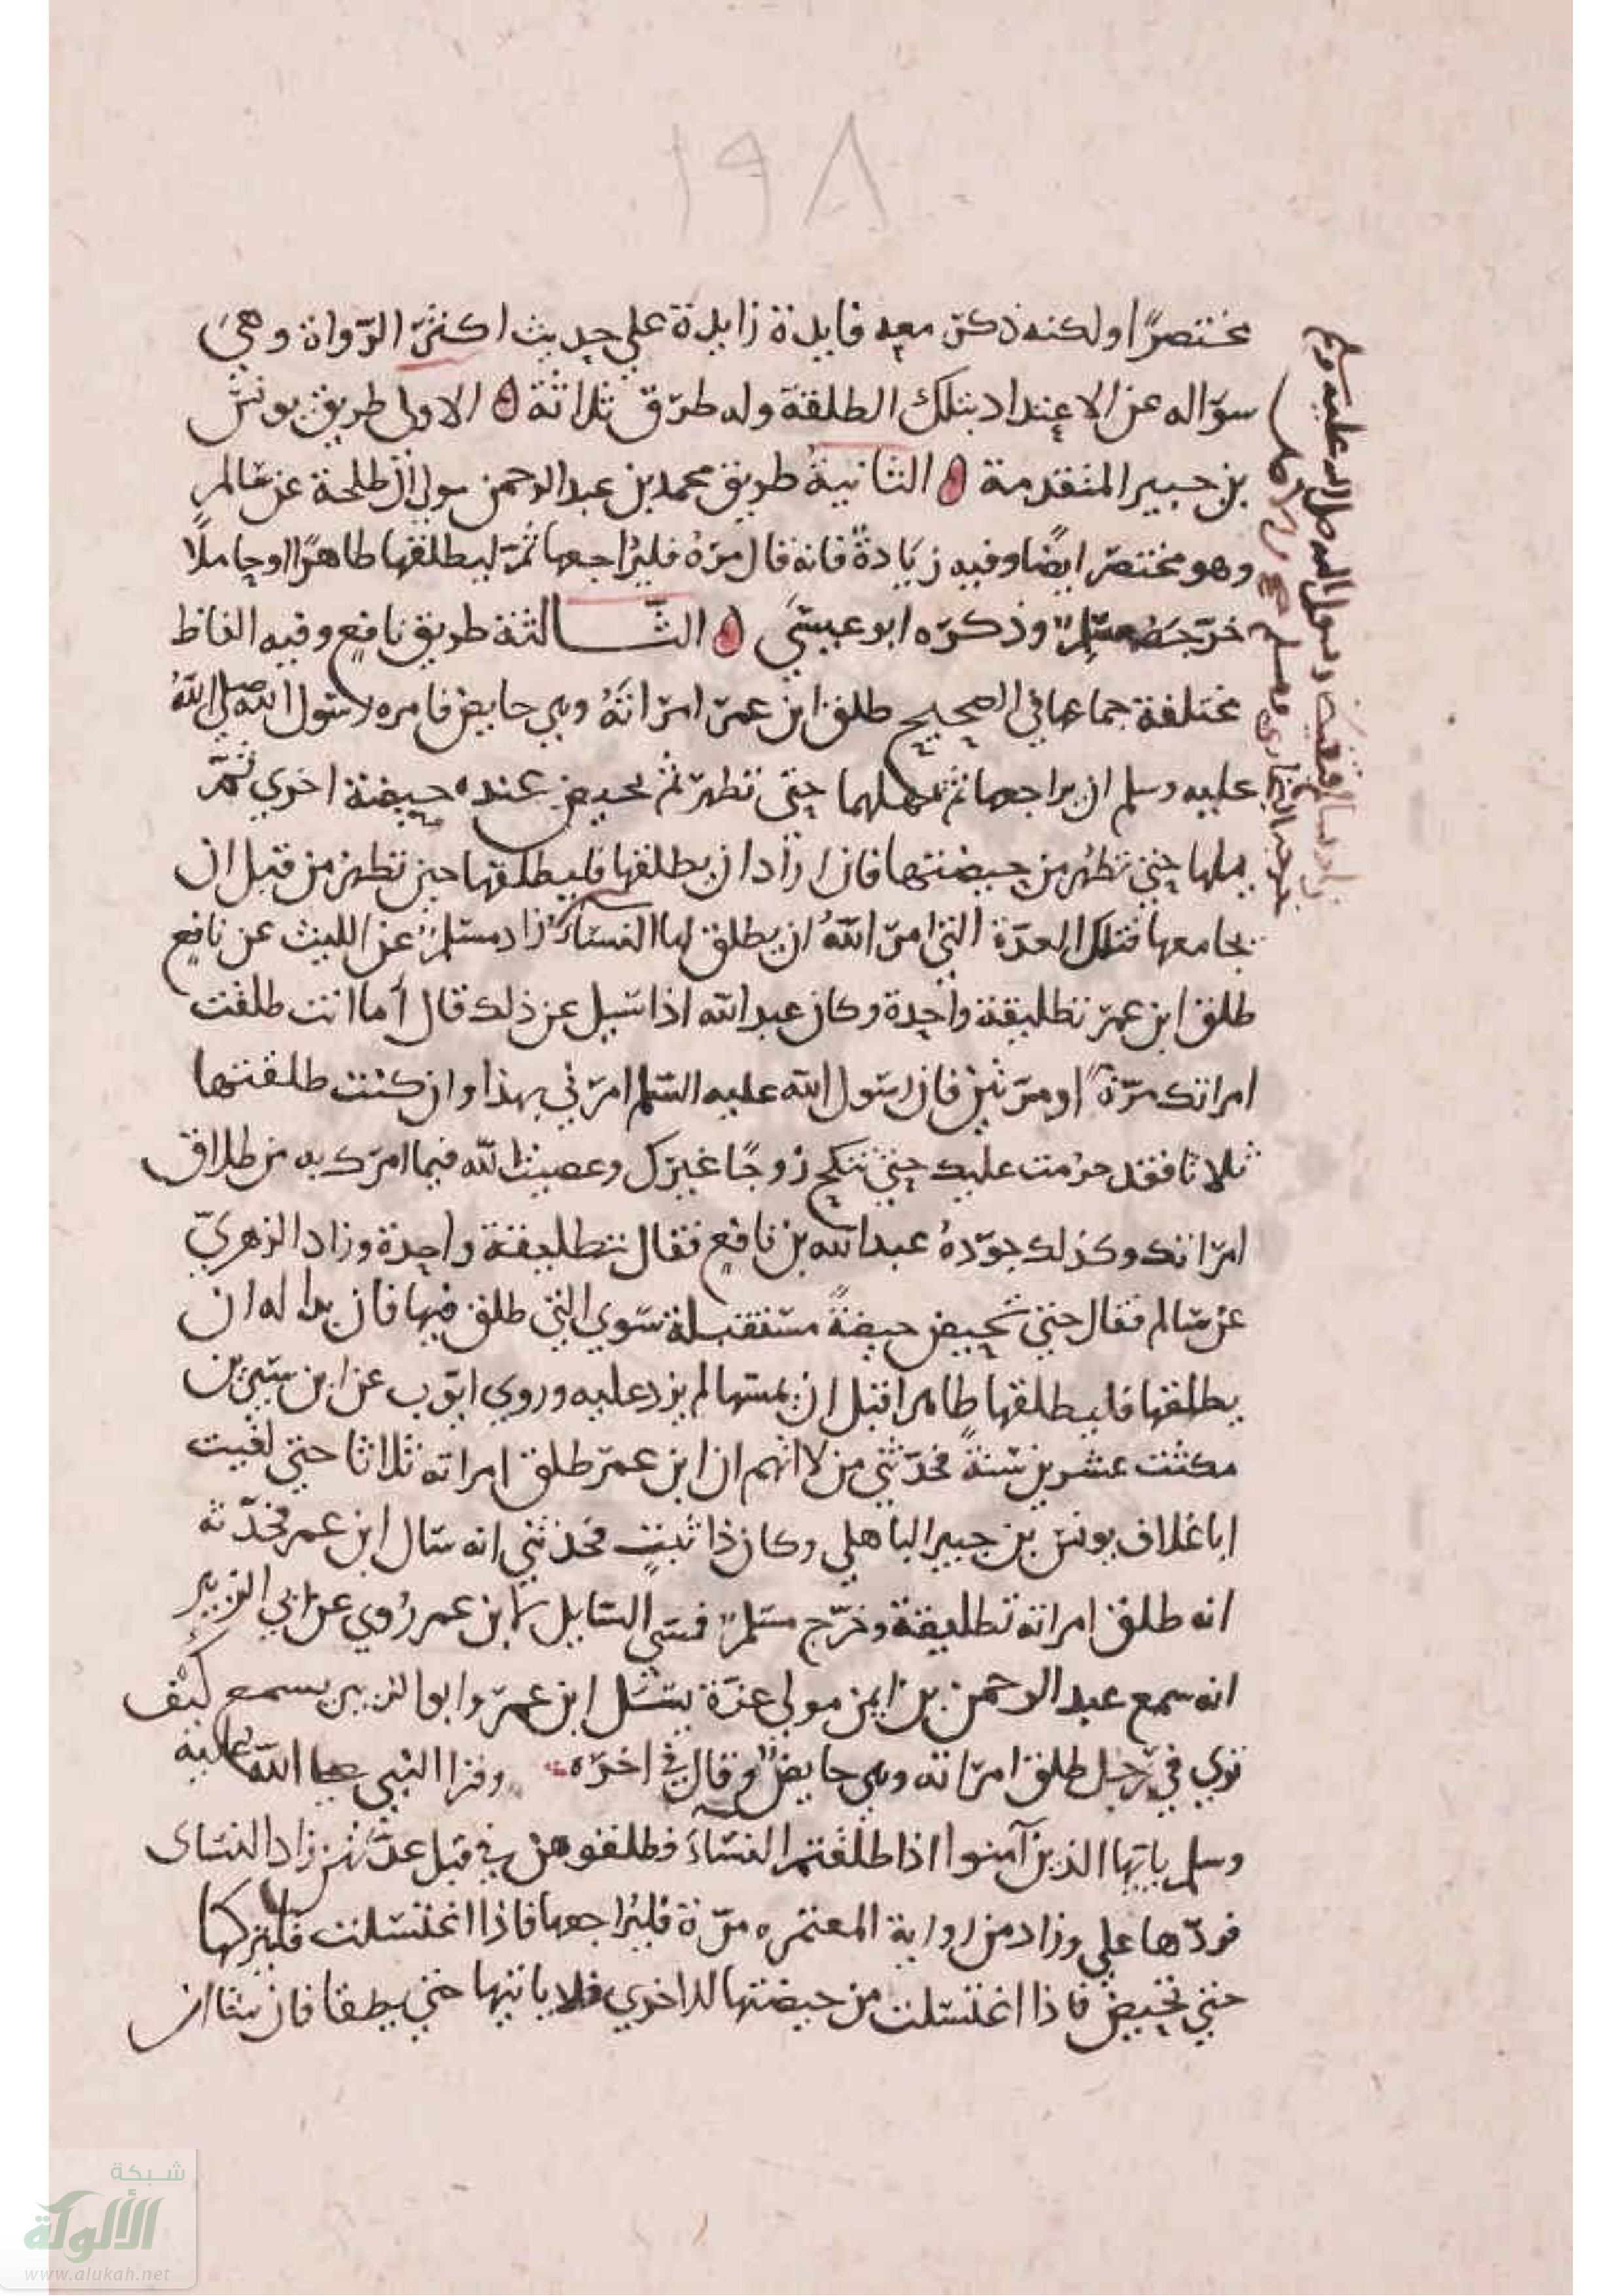 ١٩٨
مختصرًا ولكنه ذكر معه فايدة زايدة على حديث اكثر الرواة وهي
سؤاله عن الاعتداد بتلك الطلقة وله طرق ثلاثة الاولى طريق يونس
بن جبير المتقدمة الثانية طريق محمد بن عبد الرحمن مولى ال طلحة عن سالم
وهو مختصر ايضا وفيه زيادة فانه قال مره فليراجعها ثم ليطلقها طاهرًا او حاملًا
خرجه مسلم وذكره ابو عيسى الثالثة طريق نافع وفيه الفاظ
مختلفة جماعها في الصحيح طلق ابن عمر امراته وهي حايض فامره رسول الله صلى الله
عليه وسلم ان يراجعها ثم يمهلها حتى تطهر ثم تحيض عنده حيضة اخرى ثم
يمهلها حتى تطهر من حيضتها فان اراد ان يطلقها فليطلقها حين تطهر من قبل ان
يجامعها فتلك العدة التي امر الله ان يطلق لها النساء زاد مسلم عن الليث عن نافع
طلق ابن عمر تطليقة واحدة وكان عبد الله اذا سيل عن ذلك قال أما انت طلقت
امراتك مرة او مرتين فان رسول الله عليه السلم امرني بهذا وان كنت طلقتها
ثلاثا فقد حرمت عليك حتى تنكح زوجًا غيرك وعصيت الله فيما امرك به من طلاق
امراتك وكذلك جوده عبد الله بن نافع فقال تطليقة واحدة وزاد الزهري
عن سالم فقال حتى تحيض حيضةً مستقبلة سوى التي طلق فيها فان بدا له ان
يطلقها فليطلقها طاهرا قبل ان يمسها لم يزد عليه وروى ايوب عن ابن سيرين
مكثت عشرين سنةً فحدثني من لا اتهم ان ابن عمر طلق امراته ثلاثا حتى لقيت
ابا غلاف يونس بن جبير الباهلي وكان ذا ثبت فحدثني انه سال ابن عمر فحدثه
انه طلق امراته تطليقة وخرج مسلم فسمى السايل لابن عمر روي عن ابي الزبير
انه سمع عبد الرحمن بن ايمن مولى عزة يسئل ابن عمر وابو الزبير يسمع كيف
ترى في رجل طلق امراته وهي حايض وقال في اخره وقرا النبي صلى الله عليه
وسلم يايها الذين آمنوا اذا طلقتم النساء فطلقوهن في قبل عدتهن زاد النساى
فردها علي وزاد من رواية المعتمر مره فليراجعها فاذا اغتسلت فليتركها
حتى تحيض فاذا اغتسلت من حيضتها الاخرى فلا ياتيها حتى يطلقها فان شا ان
رسول الله صلى الله عليه وسلم
شبكة
الألوكة
www.alukah.net